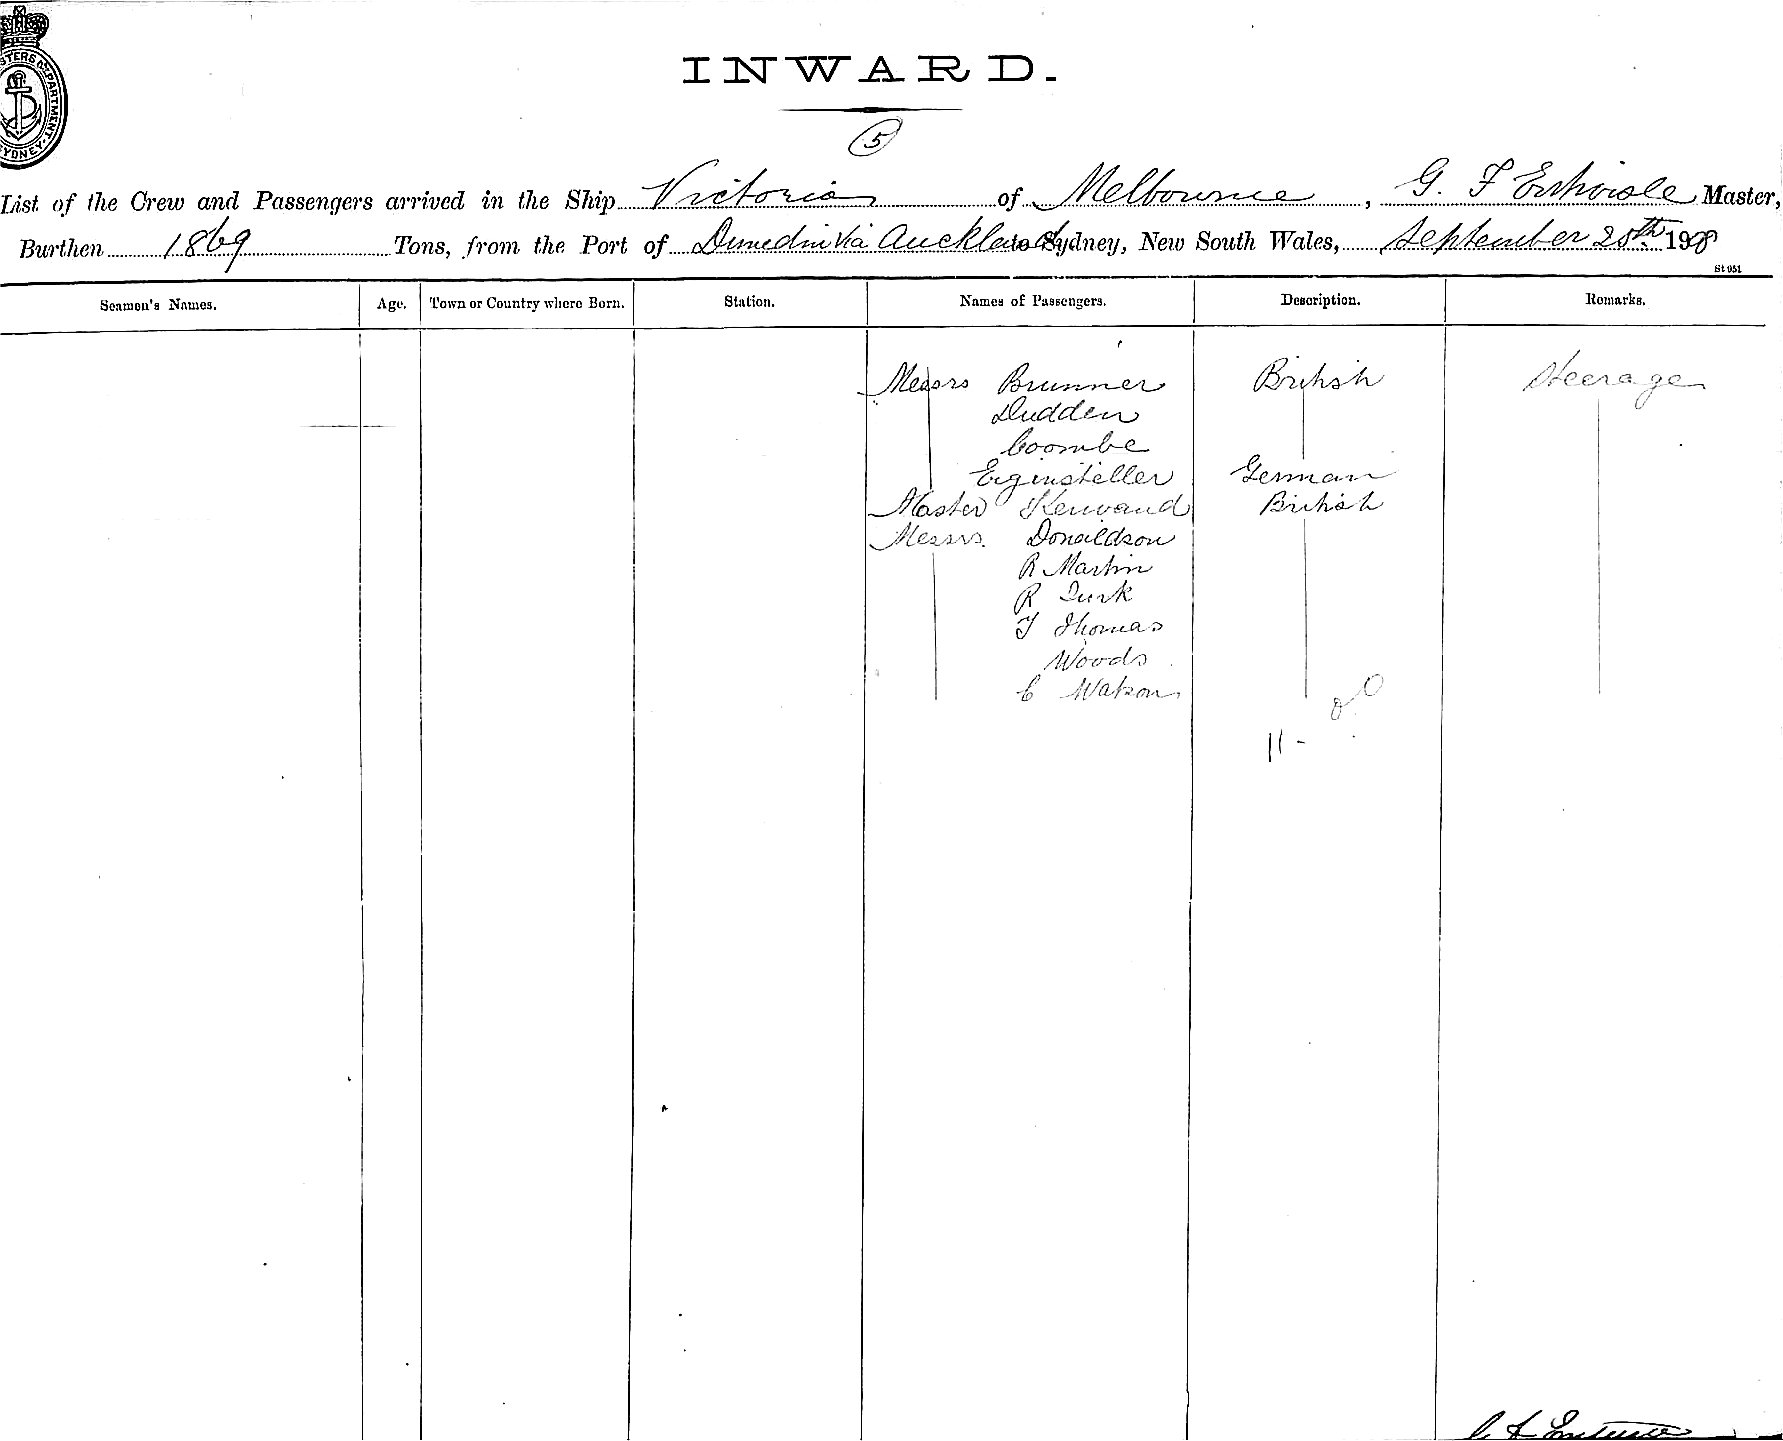 INWARD.
5
List of the Crew and Passengers arrived in the Ship Victoria of Melbourne, G. F Entwisle Master,
Burthen 1869 Tons, from the Port of Dunedin via Auckland to Sydney, New South Wales, September 20th 190
St 951
Seamen's Names. Age. Town or Country where Born. Station. Names of Passengers. Description. Remarks.
Messrs Brunner British Steerage
Dudden
Coombe
Erginsteller German
Master British
Messrs. Donaldson
R Martin
R Turk
T Thomas
Woods
C Watson
11 -